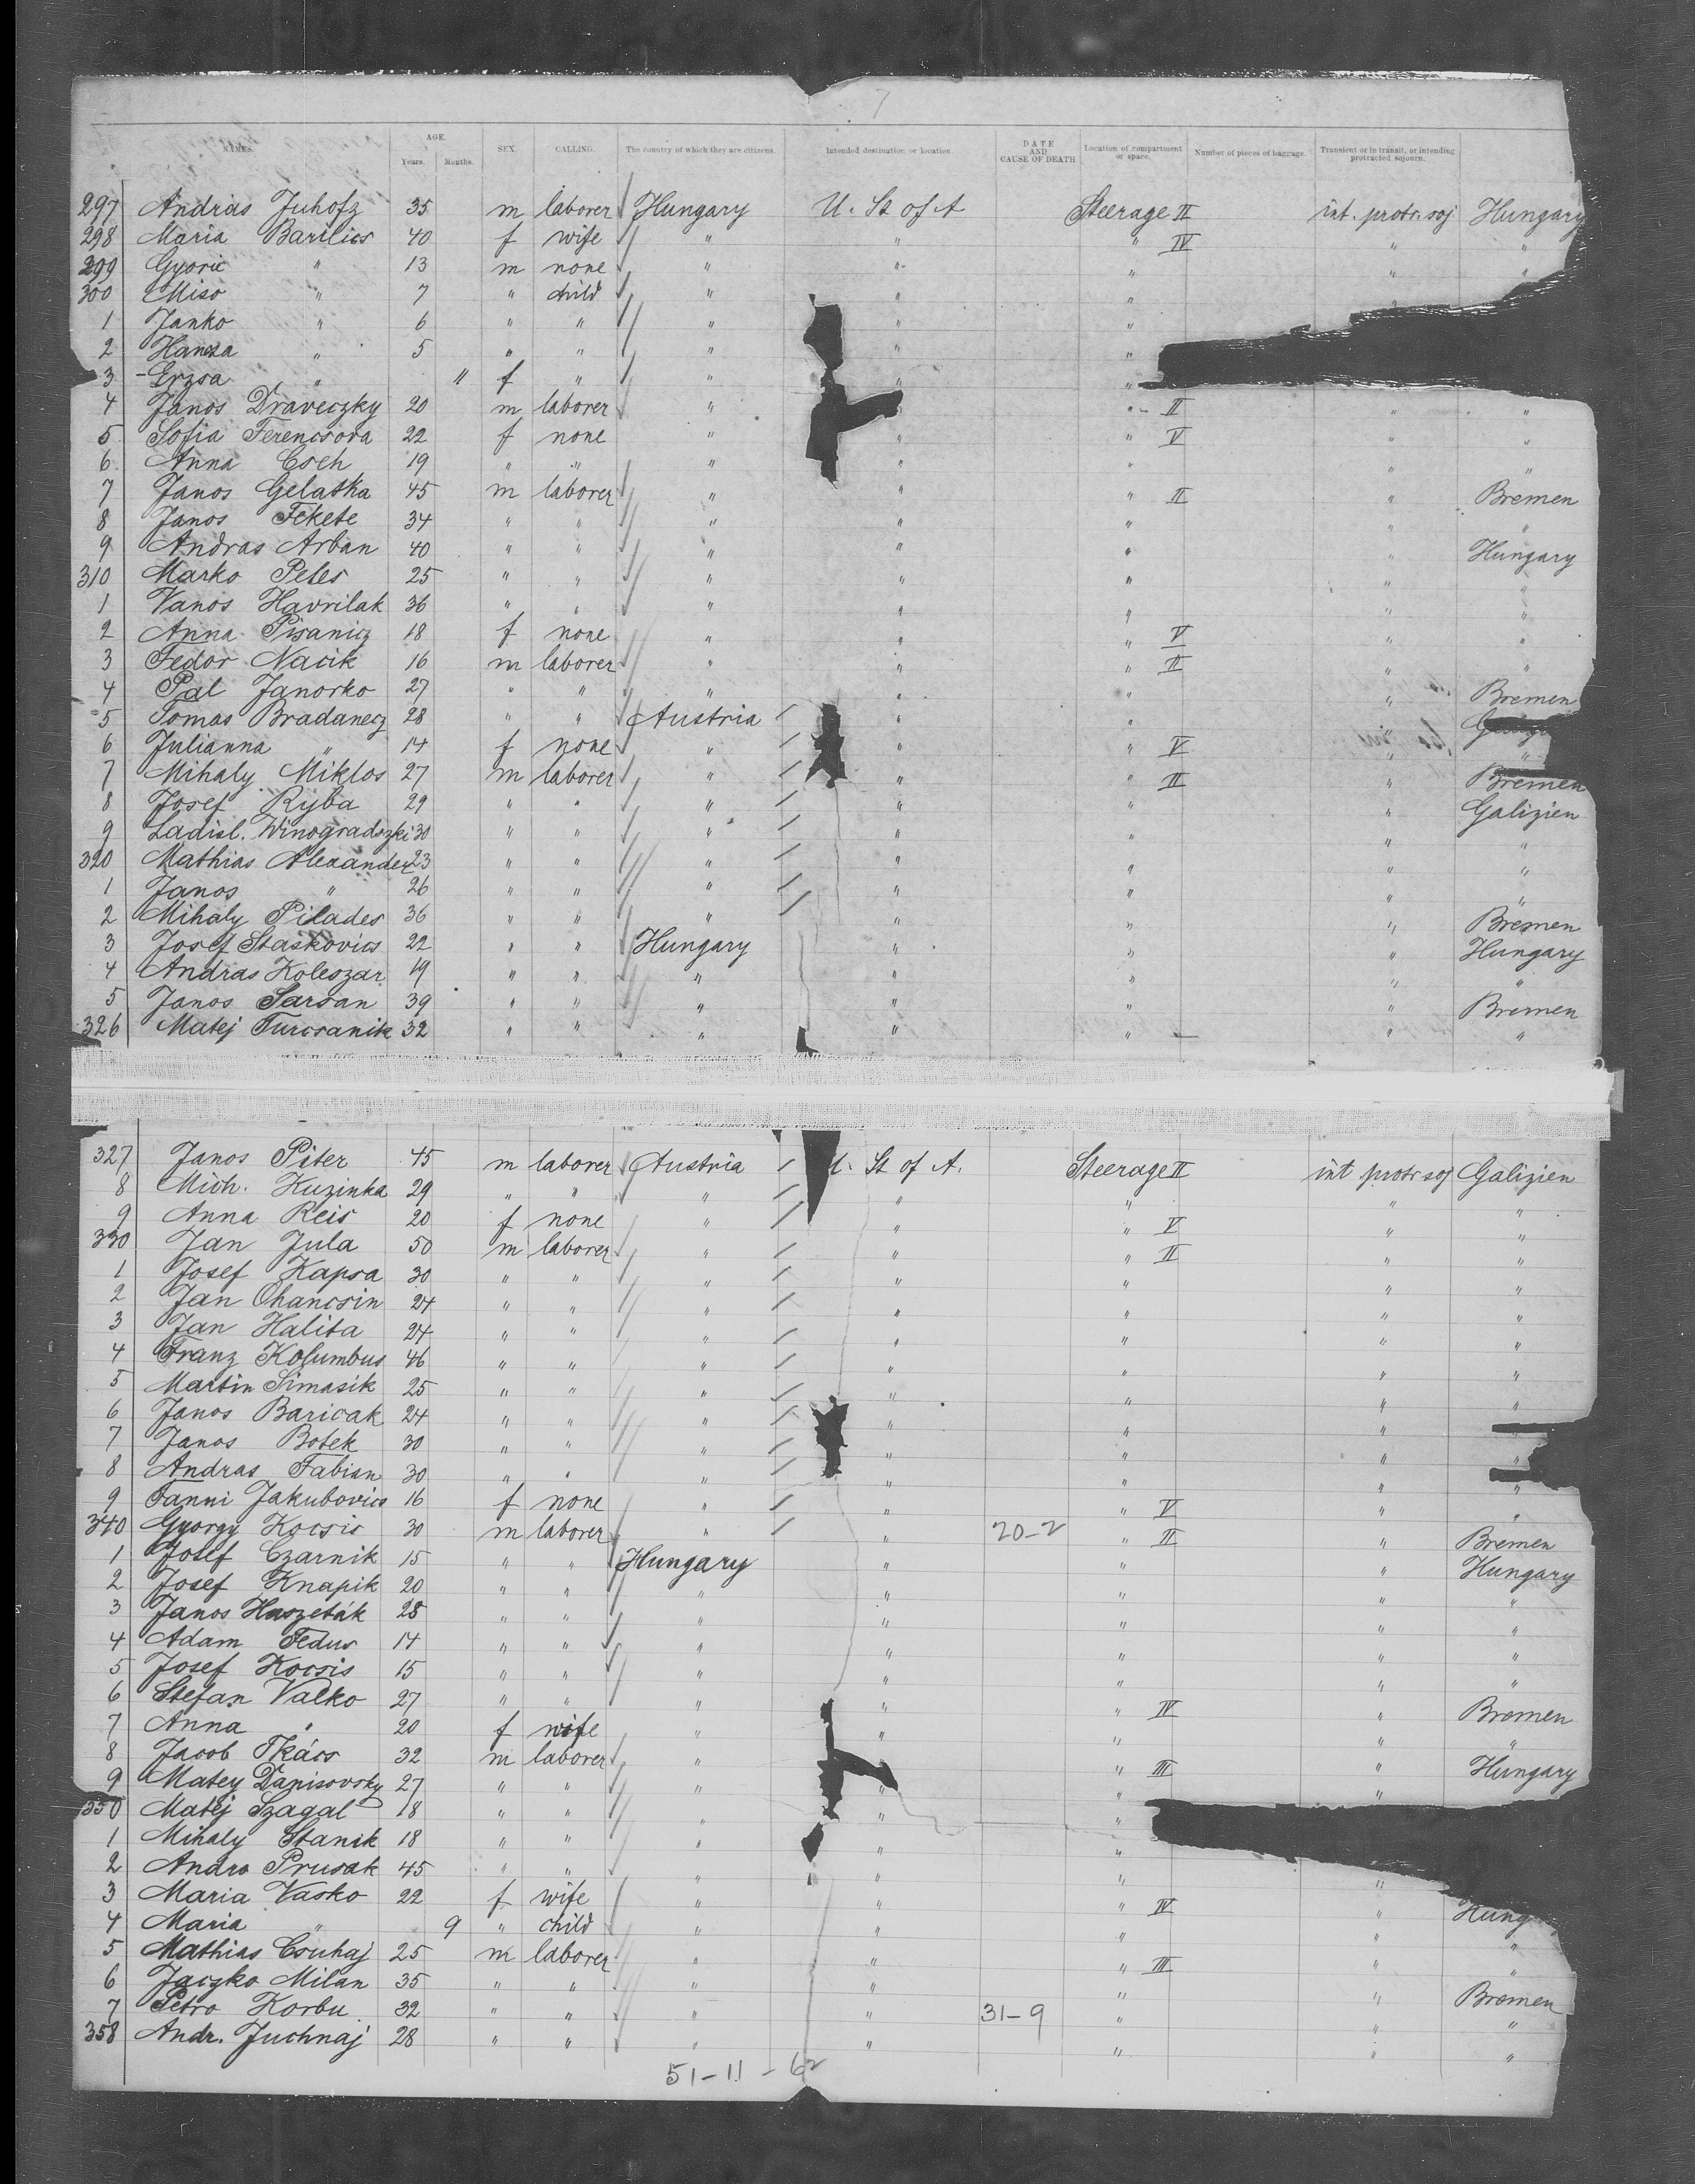 7
NAMES. AGE. Years. Months. SEX. CALLING. The country of which they are citizens. Intended destination or location. DATE AND CAUSE OF DEATH Location of compartment or space. Number of pieces of baggage. Transient or in transit, or intending protracted sojourn.
297 Andras Juhofz 35 m laborer Hungary U. St of A Steerage II int. protr. soj Hungary
298 Maria Barilics 40 f wife " " " IV " "
299 Gyoric " 13 m none " " " " "
300 Miso " 7 " child " " " "
1 Janko " 6 " " " " "
2 Hancsa " 5 " " " "  "
3 Erzsa " 11 f " " " "
4 Janos Draveczky 20 m laborer " " II " "
5 Sofia Ferencsova 22 f none " " " V " "
6 Anna Cseh 19 " " " " " " "
7 Janos Gelatka 45 m laborer " " " II " Bremen
8 Janos Fekete 34 " " " " " " "
9 Andras Arban 40 " " " " " " Hungary
310 Marko Peles 25 " " " " " " "
1 Vanos Havrilak 36 " " " " " " "
2 Anna Pisanicz 18 f none " " " V " "
3 Fedor Nacik 16 m laborer " " " II " "
4 Pal Janorko 27 " " " " " " Bremen
5 Tomas Bradanecz 28 " " Austria " " "
6 Julianna " 14 f none " " " V " "
7 Mihaly Miklos 27 m laborer " " " II " Bremen
8 Josef Ryba 29 " " " " " " Galizien
9 Ladisl. Winogradszki 30 " " " " " " "
320 Mathias Alexander 23 " " " " " " "
1 Janos " 26 " " " " " " "
2 Mihaly Pilades 36 " " " " " " Bremen
3 Josef Staskovics 22 " " Hungary " " " Hungary
4 Andras Koleszar 19 " " " " " " "
5 Janos Sarsan 39 " " " " " " Bremen
326 Matej Turcsanik 32 " " " " " " "
327 Janos Piter 45 m laborer Austria U. St of A. Steerage II int protr soj Galizien
8 Mich. Kuzinka 29 " " " " " " "
9 Anna Reis 20 f none " " " V " "
330 Jan Jula 50 m laborer " " " II " "
1 Josef Kapsa 30 " " " " " " "
2 Jan Chancsin 24 " " " " " " "
3 Jan Halita 24 " " " " " " "
4 Franz Kolumbus 46 " " " " " " "
5 Martin Simasik 25 " " " " " " "
6 Janos Baricak 24 " " " " " " "
7 Janos Botek 30 " " " " " " "
8 Andras Fabian 30 " " " " " " "
9 Fanni Jakubovics 16 f none " " " V " "
340 Gyorgy Kocsis 30 m laborer " " 20-2 " II " Bremen
1 Josef Czarnik 15 " " Hungary " " " Hungary
2 Josef Knapik 20 " " " " " " "
3 Janos Haszeták 28 " " " " " " "
4 Adam Fedus 14 " " " " " " "
5 Josef Kocsis 15 " " " " " " "
6 Stefan Valko 27 " " " " " IV " Bremen
7 Anna " 20 f wife " " " " "
8 Jacob Tkács 32 m laborer " " III " Hungary
9 Matey Danisovsky 27 " " " " " "
350 Matej Szagal 18 " " " " "
1 Mihaly Stanik 18 " " " " "
2 Andro Prusak 45 " " " " " "
3 Maria Vasko 22 f wife " " " IV " Hung
4 Maria " 9 " child " " " " "
5 Mathias Csuhaj 25 m laborer " " " III " "
6 Jaczko Milan 35 " " " " " " Bremen
7 Petro Korbu 32 " " " " 31-9 " " "
358 Andr. Juchnaj 28 " " " " " " "
51-11-62